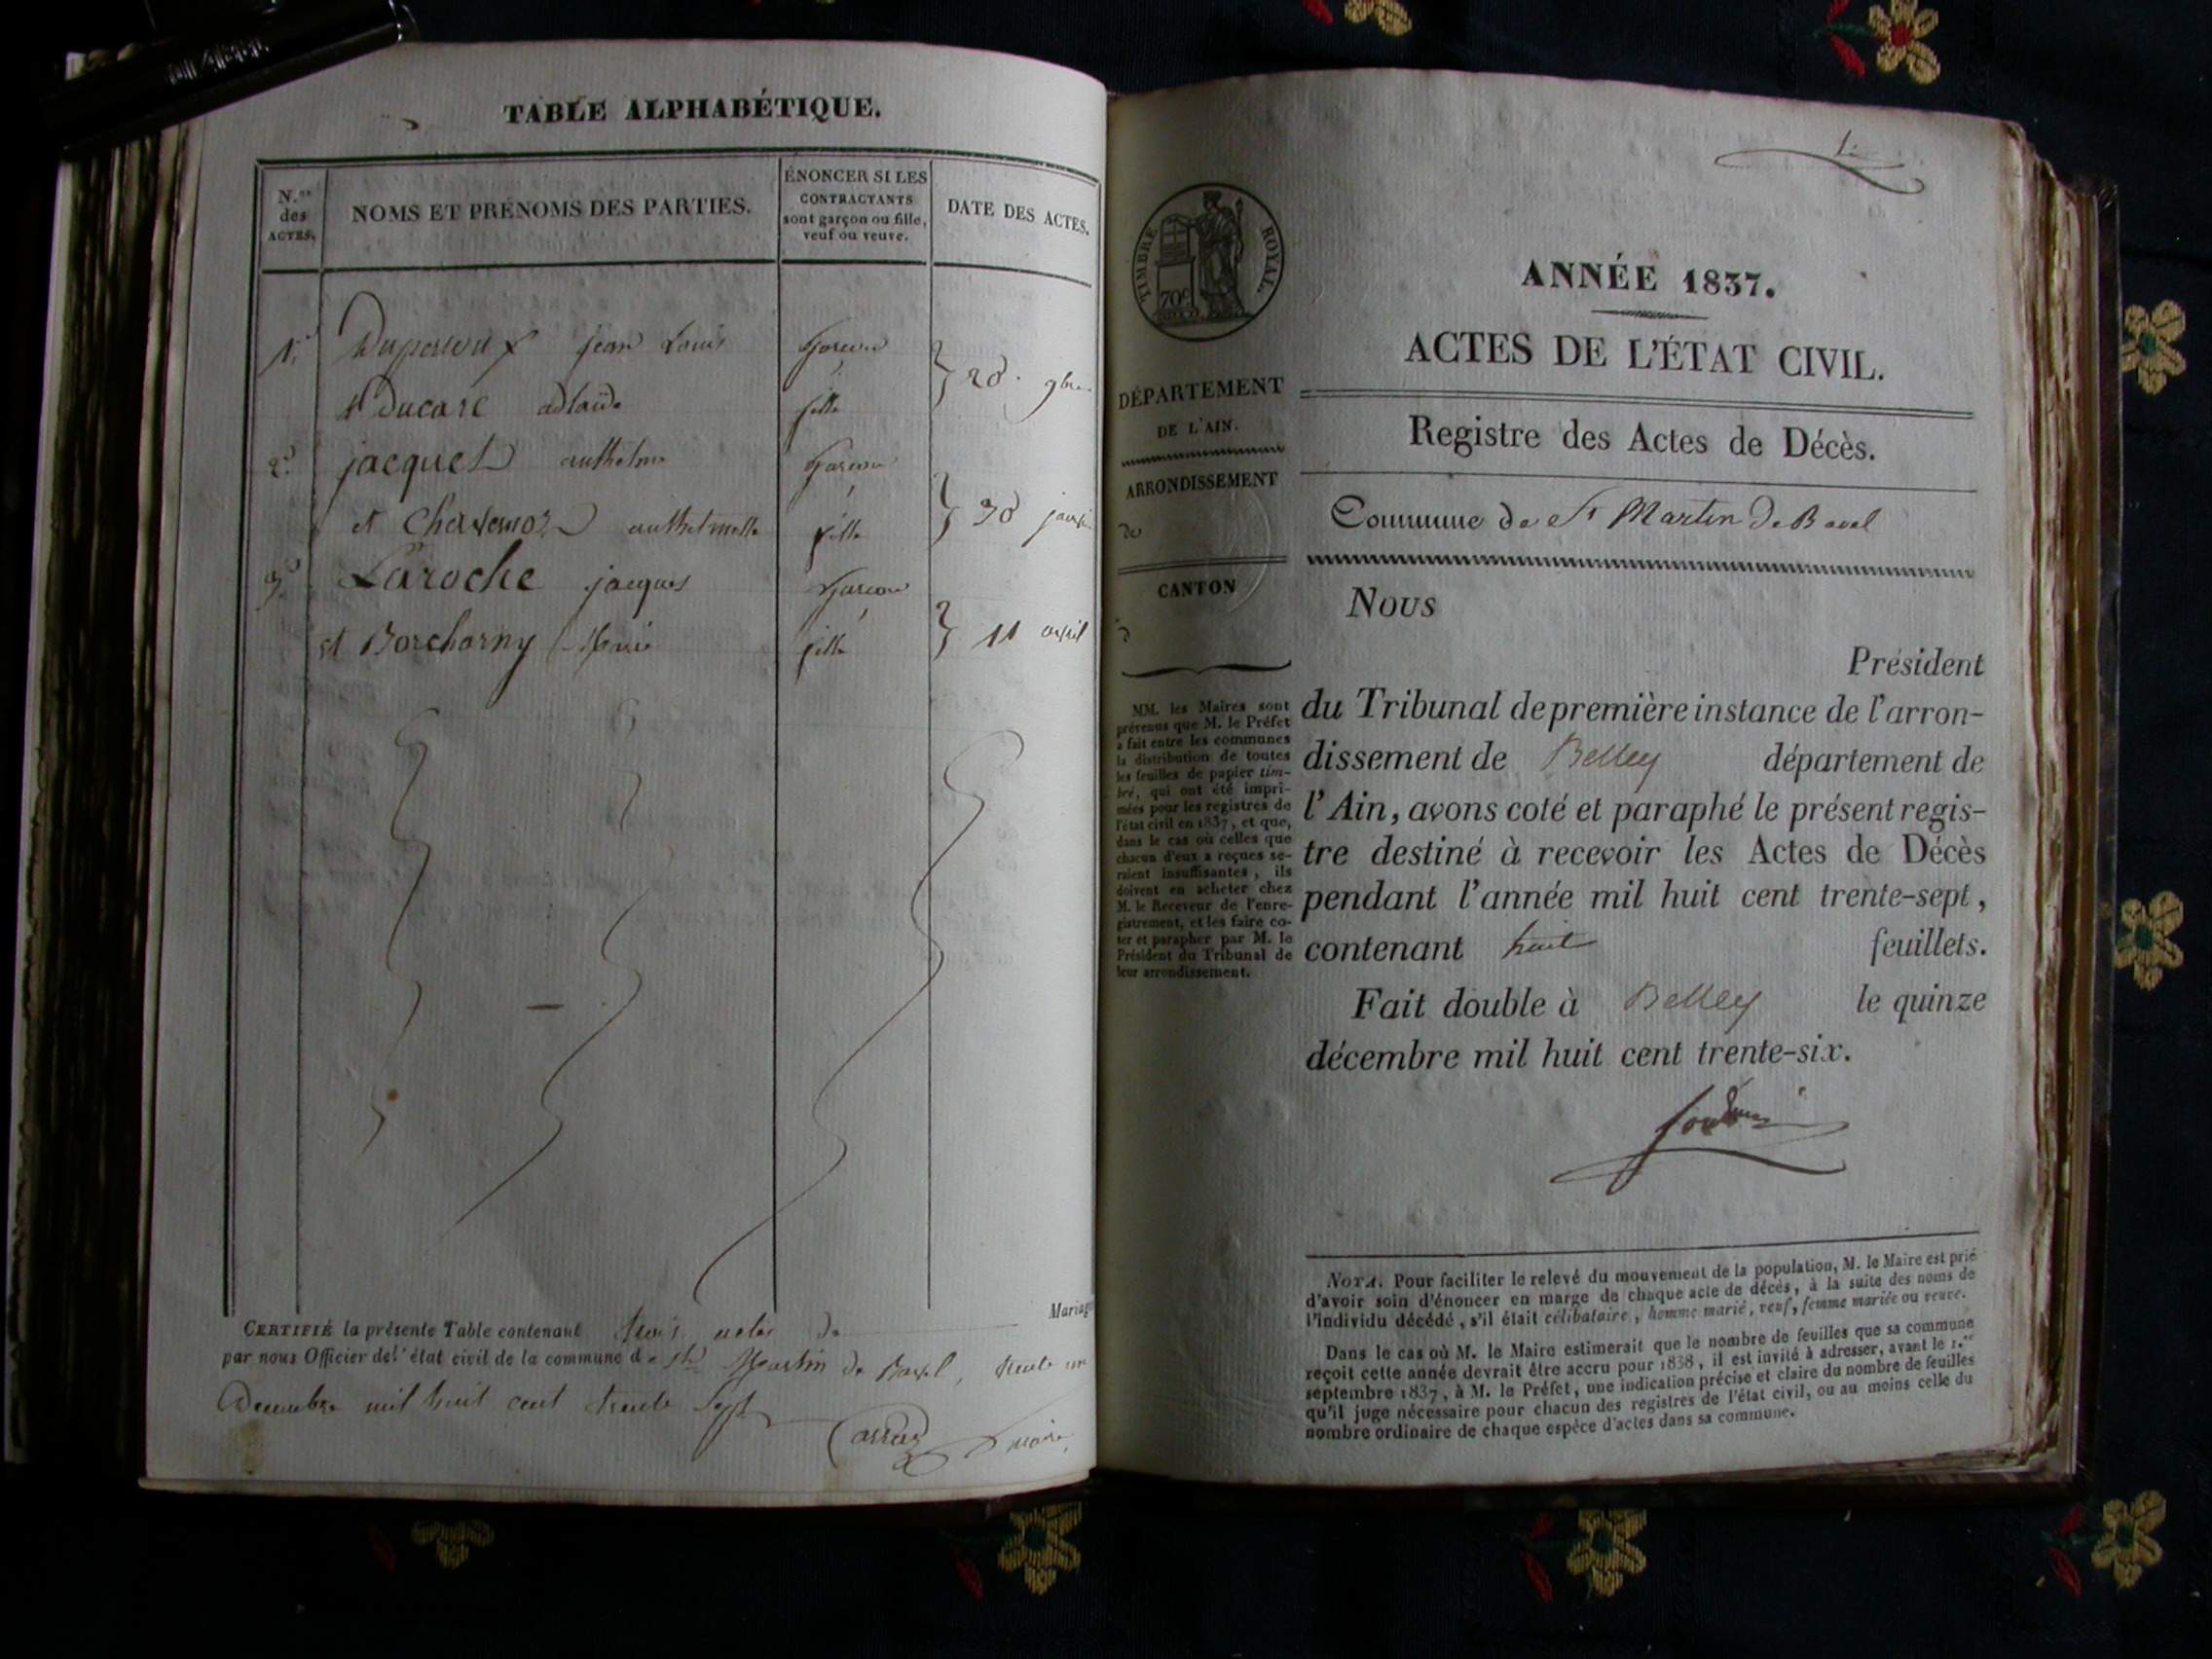 TABLE ALPHABÉTIQUE.
N.os des ACTES.
NOMS ET PRÉNOMS DES PARTIES.
ÉNONCER SI LES
CONTRACTANTS
sont garçon ou fille,
veuf ou veuve.
DATE DES ACTES.
1.
jean Louis
garcon
et Ducare
fille
28. 9bre
2.
jacquet
anthelme
garcon
et
fille
30
3.
Laroche jacques
garcon
et
fille
11 avril
Mariage
CERTIFIÉ la présente Table contenant trois actes de
par nous Officier de l'état civil de la commune de St Martin de Bavel, trente un
Decembre mil huit cent trente Sept
maire
TIMBRE ROYAL.
70c
DÉPARTEMENT
DE L'AIN.
ARRONDISSEMENT
de
CANTON
d
MM. les Maires sont
prévenus que M. le Préfet
a fait entre les communes
la distribution de toutes
les feuilles de papier tim-
bré, qui ont été impri-
mées pour les registres de
l'état civil en 1837, et que,
dans le cas où celles que
chacun d'eux a reçues se-
raient insuffisantes, ils
doivent en acheter chez
M. le Receveur de l'enre-
gistrement, et les faire co-
ter et parapher par M. le
Président du Tribunal de
leur arrondissement.
ANNÉE 1837.
ACTES DE L'ÉTAT CIVIL.
Registre des Actes de Décès.
Commune de St Martin de Bavel
Nous
Président
du Tribunal de première instance de l'arron-
dissement de Belley département de
l'Ain, avons coté et paraphé le présent regis-
tre destiné à recevoir les Actes de Décès
pendant l'année mil huit cent trente-sept,
contenant huit feuillets.
Fait double à Belley le quinze
décembre mil huit cent trente-six.
NOTA. Pour faciliter le relevé du mouvement de la population, M. le Maire est prié
d'avoir soin d'énoncer en marge de chaque acte de décès, à la suite des noms de
l'individu décédé, s'il était célibataire, homme marié, veuf, femme mariée ou veuve.
Dans le cas où M. le Maire estimerait que le nombre de feuilles que sa commune
reçoit cette année devrait être accru pour 1838, il est invité à adresser, avant le 1.er
septembre 1837, à M. le Préfet, une indication précise et claire du nombre de feuilles
qu'il juge nécessaire pour chacun des registres de l'état civil, ou au moins celle du
nombre ordinaire de chaque espèce d'actes dans sa commune.